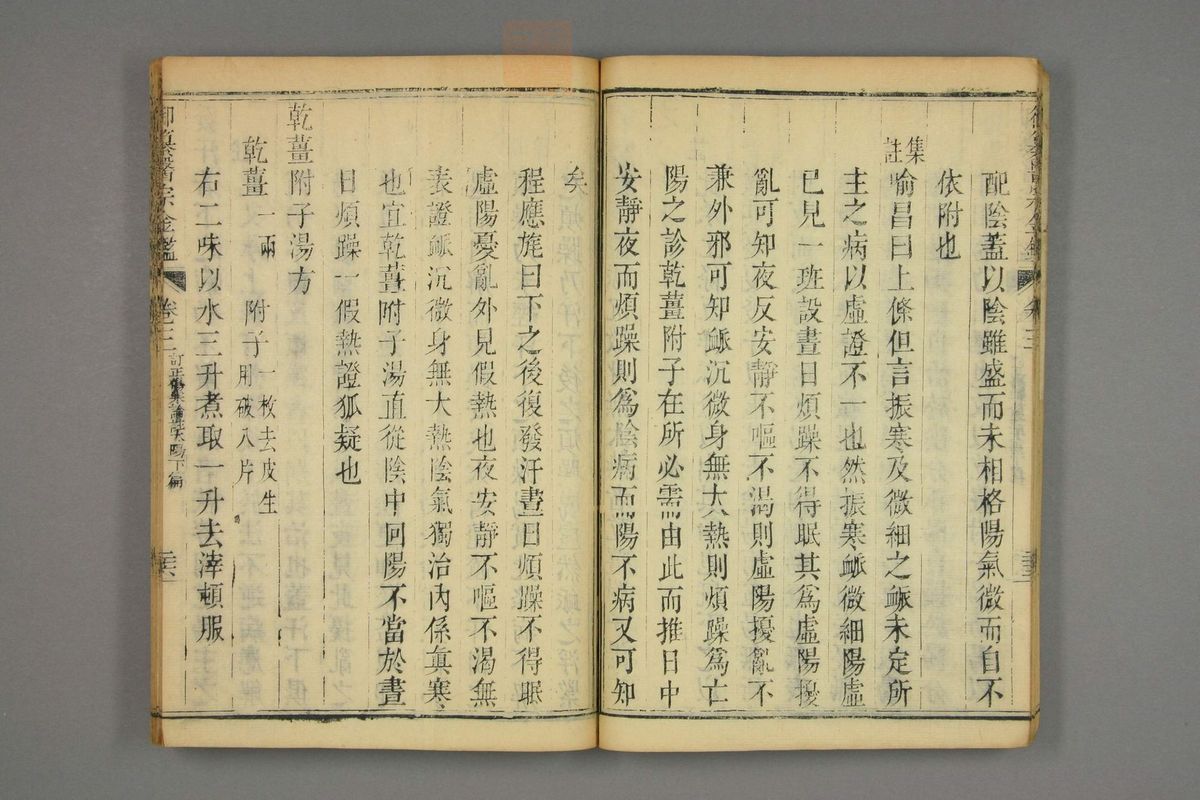 配陰蓋以陰雖盛而未相格陽氣微而自不
依附也
集註
喻昌曰上條但言振寒及微細之脈未定所
主之病以虛證不一也然振寒脈微細陽虛
已見一班設晝日煩躁不得眠其爲虛陽擾
亂可知夜反安靜不嘔不渴則虛陽擾亂不
兼外邪可知脈沉微身無大熱則煩躁爲亡
陽之診乾薑附子在所必需由此而推日中
安靜夜而煩躁則爲陰病而陽不病又可知
矣
程應旄曰下之後復發汗晝日煩躁不得眠
虛陽憂亂外見假熱也夜安靜不嘔不渴無
表證脈沉微身無大熱陰氣獨治內係眞寒
也宜乾薑附子湯直從陰中回陽不當於晝
日煩躁一假熱證狐疑也
乾薑附子湯方
乾薑一兩　附子一枚去皮生用破八片
右二味以水三升煮取一升去滓頓服
御纂醫宗金鑑　卷三　訂正傷寒論註太陽下篇